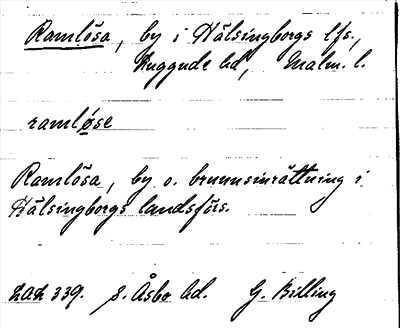 Ramlösa, by i Hälsingborgs lfs.,
Luggude hd, Malm. l.
ramlöse
Ramlösa, by o. brunnsinrättning i
Hälsingborgs landsförs.
LAL 339. S. Åsbo hd. G. Billing